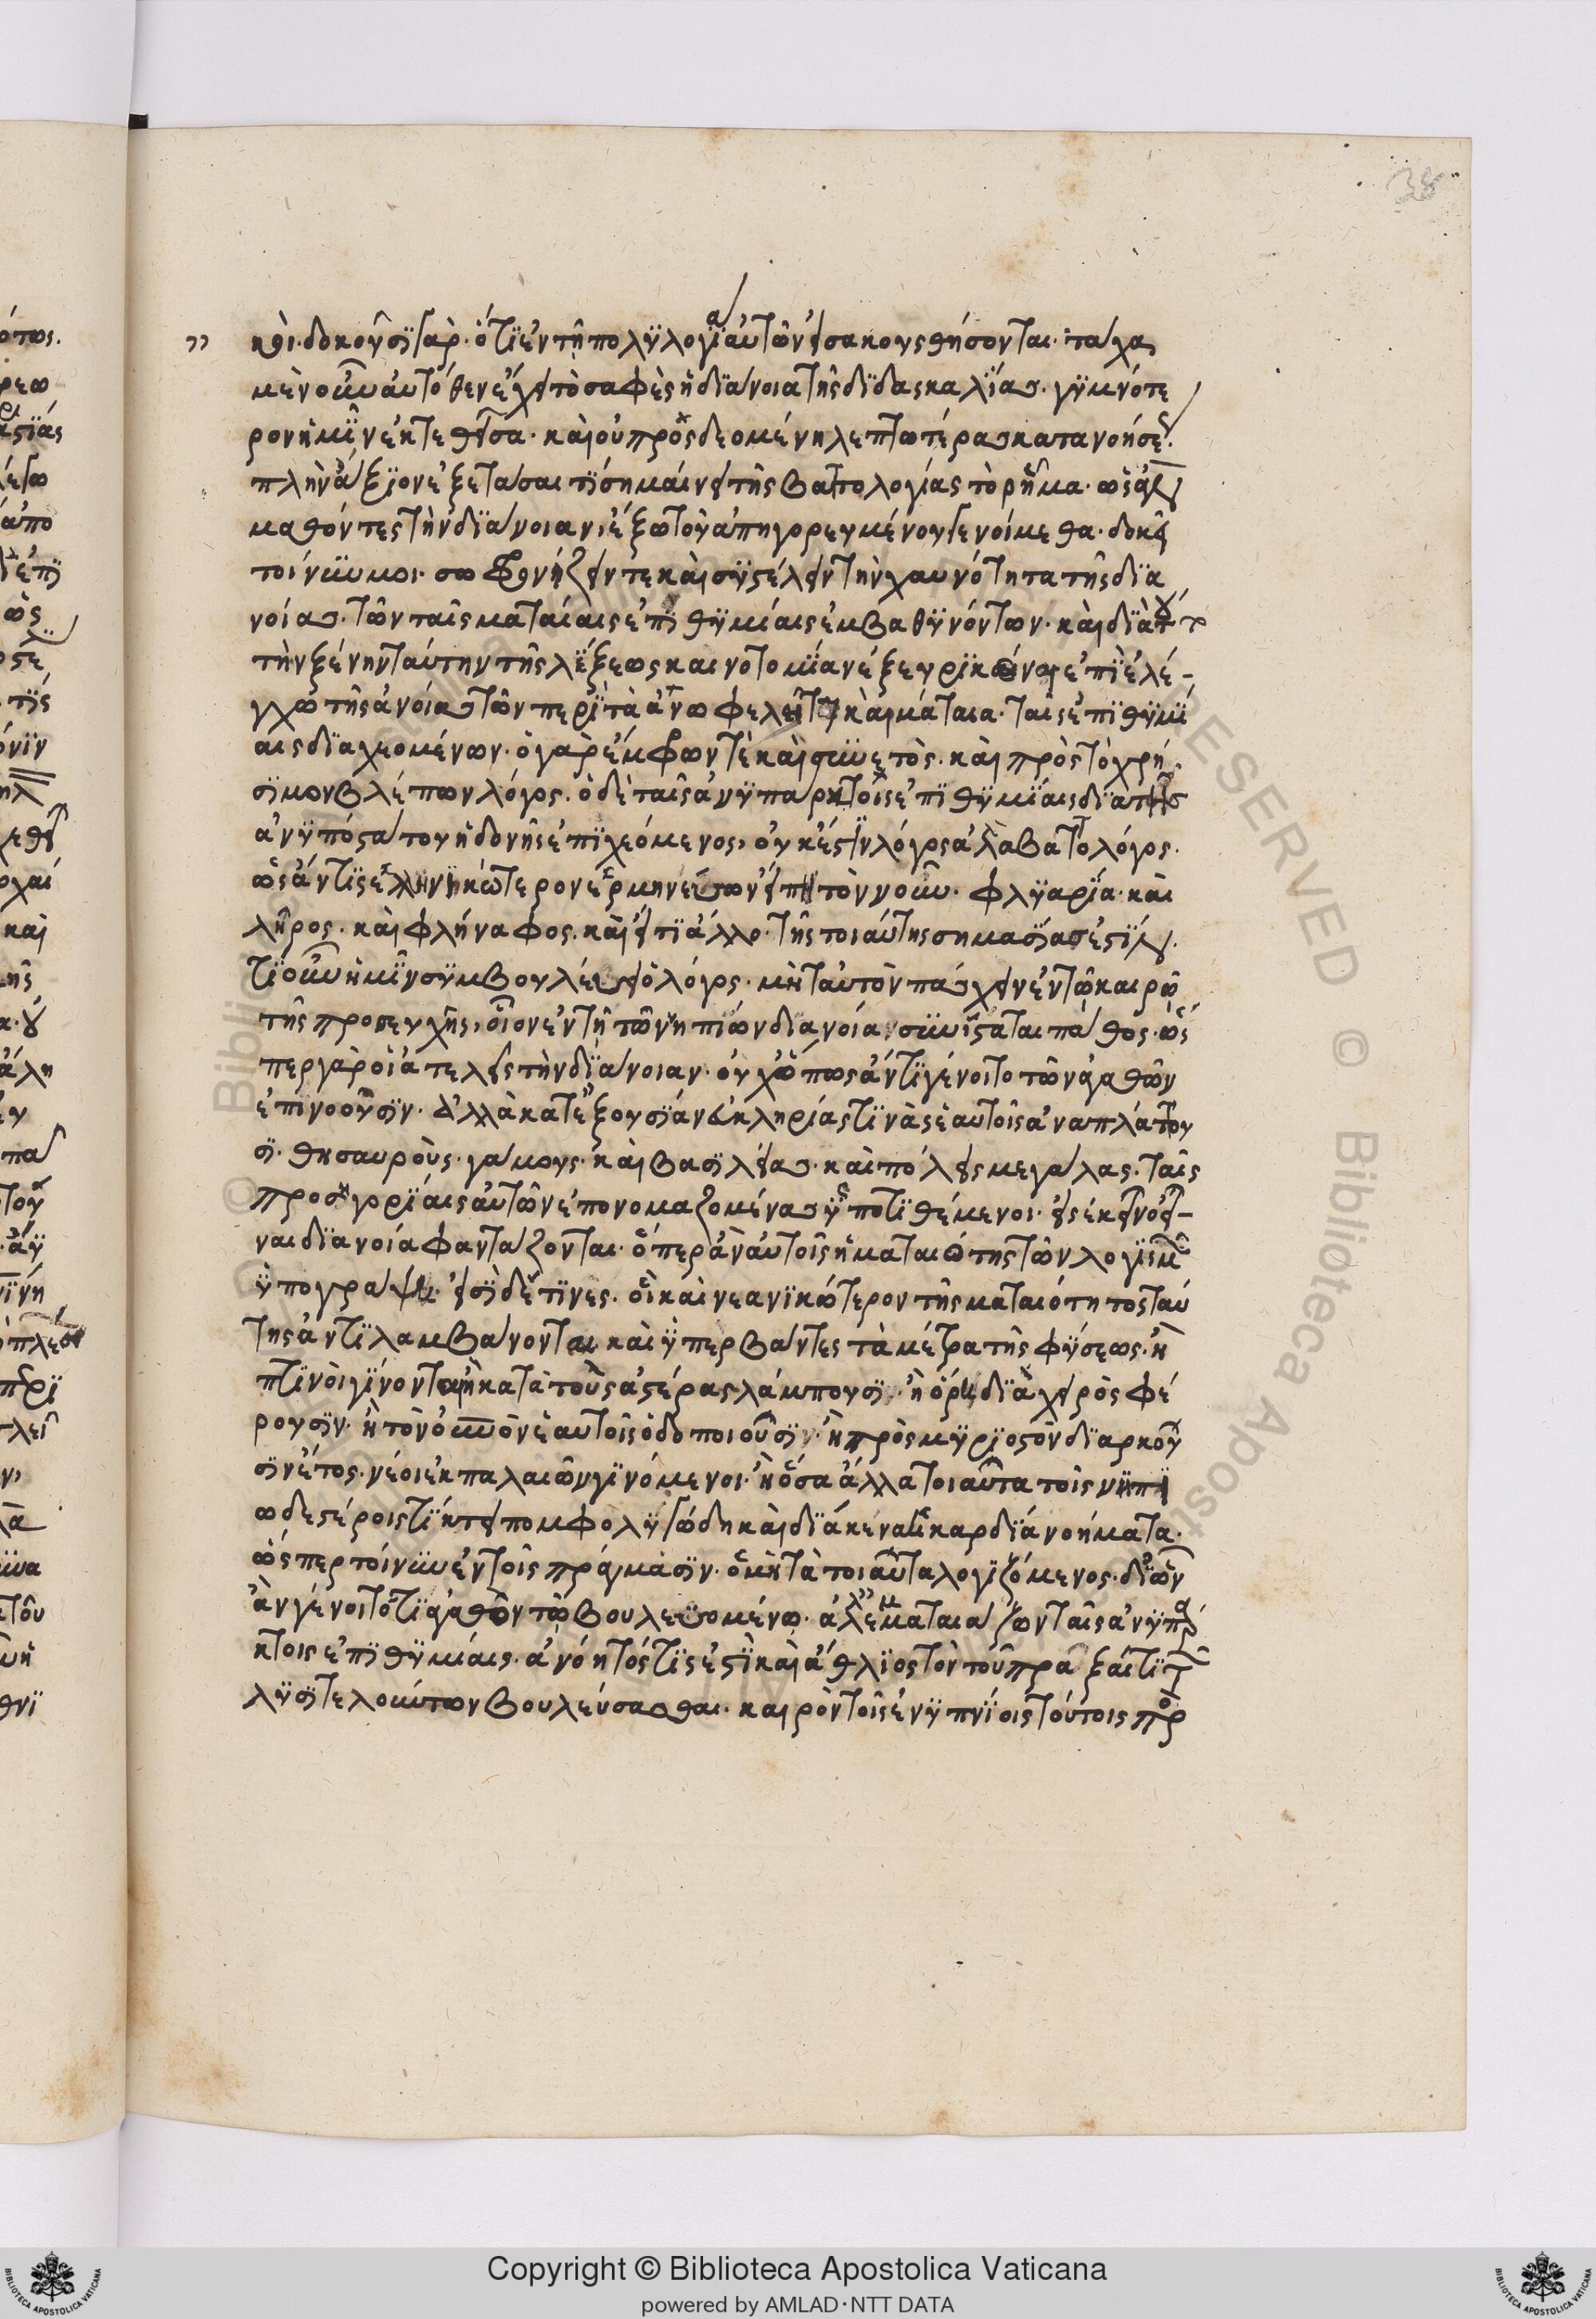 38
κοι· δοκοῦσι γὰρ· ὅτι ἐν τῇ πολυλογία αὐτῶν εἰσακουσθήσονται· τάχα
μὲν οὖν αὐτόθεν ἔχει τὸ σαφὲς ἡ διάνοια τῆς διδασκαλίας· γυμνότε
ρον ἡμῖν ἐκτεθεῖσα· καὶ οὐ προσδεομένη λεπτωτέρας κατανοήσε·
πλὴν ἄξιον ἐξετάσαι τί σημαίνει τῆς βαττολογίας τὸ ρῆμα· ὡς ἂν
μαθόντες τὴν διάνοιαν, ἔξω τοῦ ἀπηγορευμένου γενοίμεθα· δοκεῖ
τοίνυν μοι· σωφρονίζειν τε καὶ συστέλειν τὴν χαυνότητα τῆς δια
νοίας· τῶν ταῖς ματαίαις ἐπιθυμίαις ἐμβαθυνόντων· καὶ διὰ τοῦτο
τὴν ξένην ταύτην τῆς λέξεως καινοτομίαν ἐξευρικέναι ἐπὶ ἐλέ-
γχω τῆς ἀνοίας τῶν περὶ τὰ ἀνωφελεῖ τε καὶ μάταια· ταῖς ἐπιθυμί
αις διαχεομένων· ὁ γὰρ ἔμφρων τὲ καὶ συνετὸς· καὶ πρὸς τὸ χρή
σιμον βλέπων λόγος· ὁ δὲ ταῖς ἀνυπαρκτοις ἐπιθυμίαις διὰ τῆς
ἀνυπόστατου ἡδονῆς ἐπιχεόμενος, οὐκ ἔστιν λόγος ἀλλὰ βαττολόγος·
ὡς ἄν τις ἑλληνηκώτερον ἑρμηνεύων εἴπη τὸν νοῦν· φλυαρία· καὶ
λῆρος· καὶ φλήναφος· καὶ εἴ τι ἄλλο· τῆς τοιαύτης σημασίας ἐστίν·
τί οὖν ἡμῖν συμβουλεύει ὁ λόγος· μὴ ταυτὸν πάσχειν ἐν τῶ καιρῶ
τῆς προσευχῆς, οἷον ἐν τῇ τῶν νηπίων διανοία, συνίσταται πάθος· ὡς
περ γὰρ οἱ ἀτελεῖς τὴν διάνοιαν· οὐχ ὅπως ἄν τι γένοιτο τῶν ἀγαθῶν
ἐπινοοῦσιν· ἀλλὰ κατ' ἐξουσίαν εὐκληρίας τινὰς ἑαυτοῖς ἀναπλάττου
σι· θησαυροὺς· γάμους· καὶ βασιλείας· καὶ πόλεις μεγάλας· ταῖς
προσηγορίαις αὐτῶν ἐπονομαζομένας ὑποτιθέμενοι· εἰς ἐκεῖνο εἶ-
ναι διανοία φαντάζονται· ὅπερ ἂν αὐτοῖς ἡ ματαιότης τῶν λογισμῶν
ὑπογράψη· εἰσὶ δέ τινες· οἳ καὶ νεανικώτερον τῆς ματαιότητος ταύ
της ἀντιλαμβάνονται καὶ ὑπερβάντες τὰ μέτρα τῆς φύσεως· ἢ
πτινοὶ γίνονται ἢ κατὰ τοὺς ἀστέρας λάμπουσι· ἢ ὄρη διὰ χειρὸς φέ
ρουσιν· ἢ τὸν οὐνὸν ἑαυτοῖς ὁδοποιοῦσιν· ἢ πρὸς μυριοστὸν διαρκοῦ
σιν ἔτος· νέοι ἐκ παλαιῶν γινόμενοι· ἢ ὅσα ἄλλα τοιαῦτα τοῖς νηπι
ωδεστέροις τίκτει πομφολυγώδη καὶ διάκενα ἡ καρδία νοήματα·
ὥσπερ τοίνυν ἐν τοῖς πράγμασιν· ὁ μὴ τὰ τοιαῦτα λογιζόμενος· δι' ὧν
ἂν γένοιτό τι ἀγαθὸν τῶ βουλευομένω· ἀλλ' ἐμματαιάζων ταῖς ἀνυπάρ
κτοις ἐπιθυμίαις· ἀνόητός τίς ἐστι καὶ ἄθλιος τὸν τοῦ πρᾶξαί τι τῶν
λυσιτελούντων βουλεύσασθαι· καιρὸν τοῖς ἐνυπνίοις τούτοις προ
Copyright © Biblioteca Apostolica Vaticana
powered by AMLAD·NTT DATA